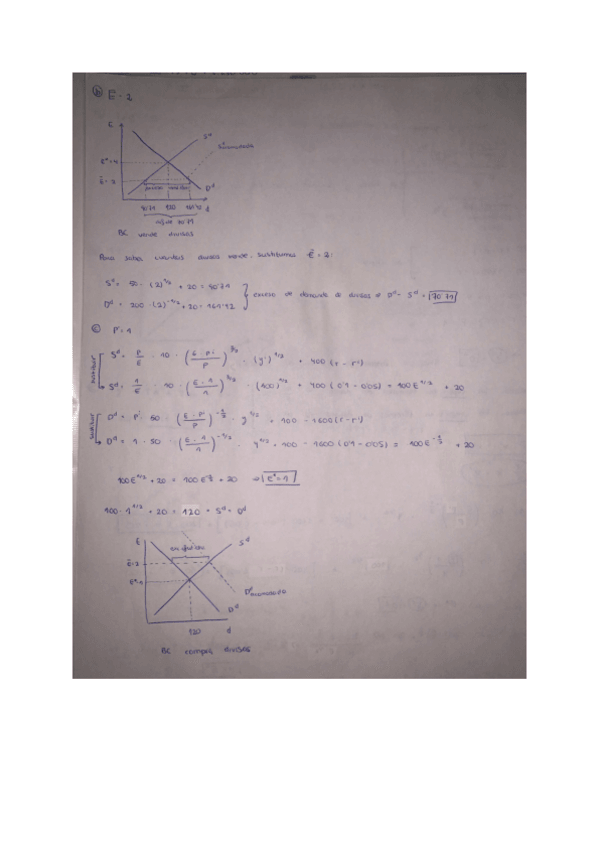 b) Ē = 2
E
S^d
S^d acumulada
E* = 4
Ē = 2
D^d
90'71 120 161'42 d
70'71
BC vende divisas
Para saber cuantas divisas vende, sustituimos Ē = 2:
S^d = 50 · (2)^1/2 + 20 = 90'71
D^d = 200 · (2)^-1/2 + 20 = 161'42
exceso de demanda de divisas = D^d - S^d = 70'71
c) P = 1
sustituir
S^d = P/E · 10 · (E · P*/P)^3/2 · (y*)^1/2 + 400 (r - r*)
S^d = 1/E · 10 · (E · 1/1)^3/2 · (100)^1/2 + 400 (0'1 - 0'05) = 100E^1/2 + 20
sustituir
D^d = P* · 50 · (E · P*/P)^-1/2 · y^1/2 + 100 - 1600 (r - r*)
D^d = 1 · 50 · (E · 1/1)^-1/2 · 4^1/2 + 100 - 1600 (0'1 - 0'05) = 100E^-1/2 + 20
100E^1/2 + 20 = 100E^-1/2 + 20 → E* = 1
100 · 1^1/2 + 20 = 120 = S^d = D^d
E
S^d
Ē = 2
E* = 1
D^d
120 d
BC compra divisas